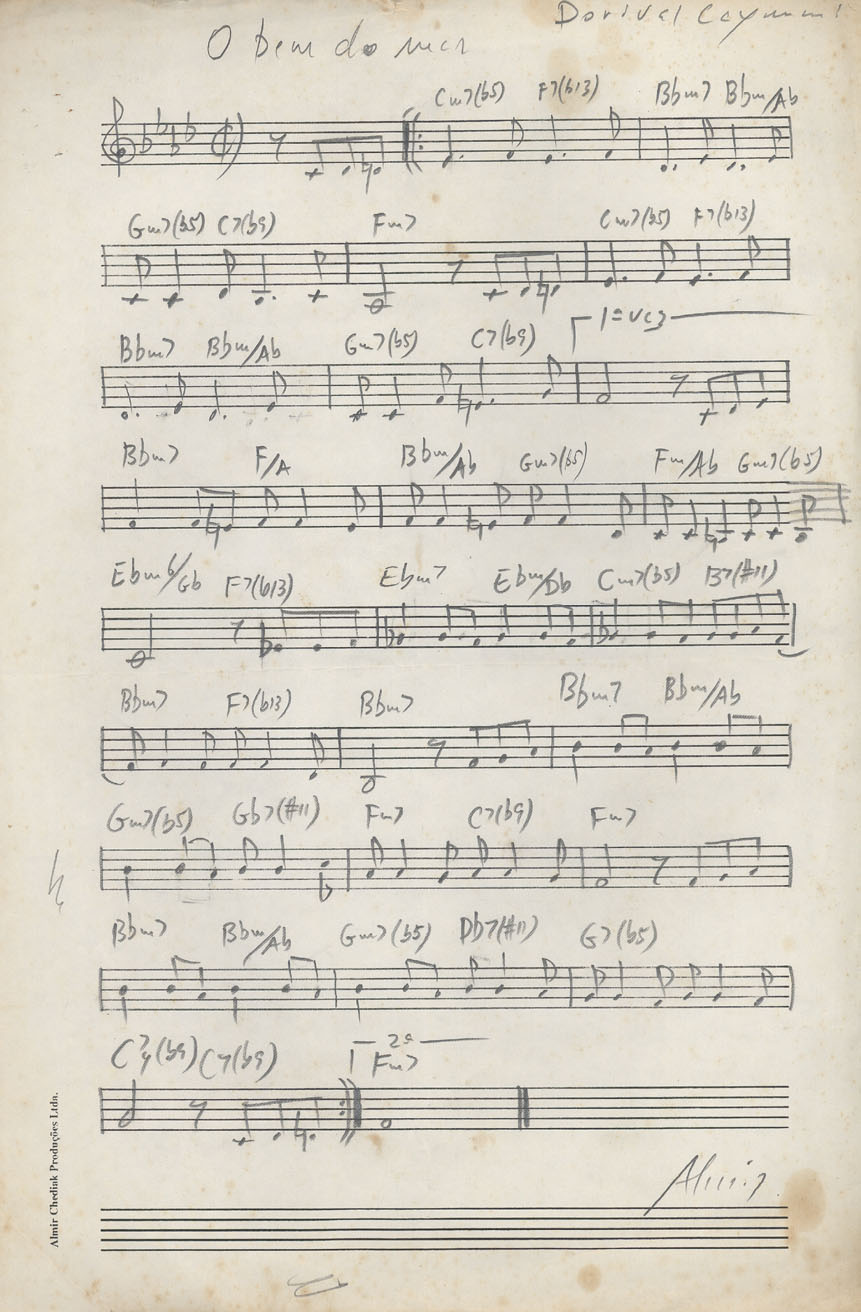 Dorival Caymmi
O bem do mar
Cm7(b5) F7(b13) Bbm7 Bbm/Ab
Gm7(b5) C7(b9) Fm7 Cm7(b5) F7(b13)
1ª vez
Bbm7 Bbm/Ab Gm7(b5) C7(b9)
Bbm7 F/A Bbm/Ab Gm7(b5) Fm/Ab Gm7(b5)
Ebm6/Gb F7(b13) Ebm7 Ebm/Db Cm7(b5) B7(#11)
Bbm7 F7(b13) Bbm7 Bbm7 Bbm/Ab
Gm7(b5) Gb7(#11) Fm7 C7(b9) Fm7
Bbm7 Bbm/Ab Gm7(b5) Db7(#11) G7(b5)
2ª
C7/4(b9) C7(b9) Fm7
Almir
Almir Chediak Produções Ltda.